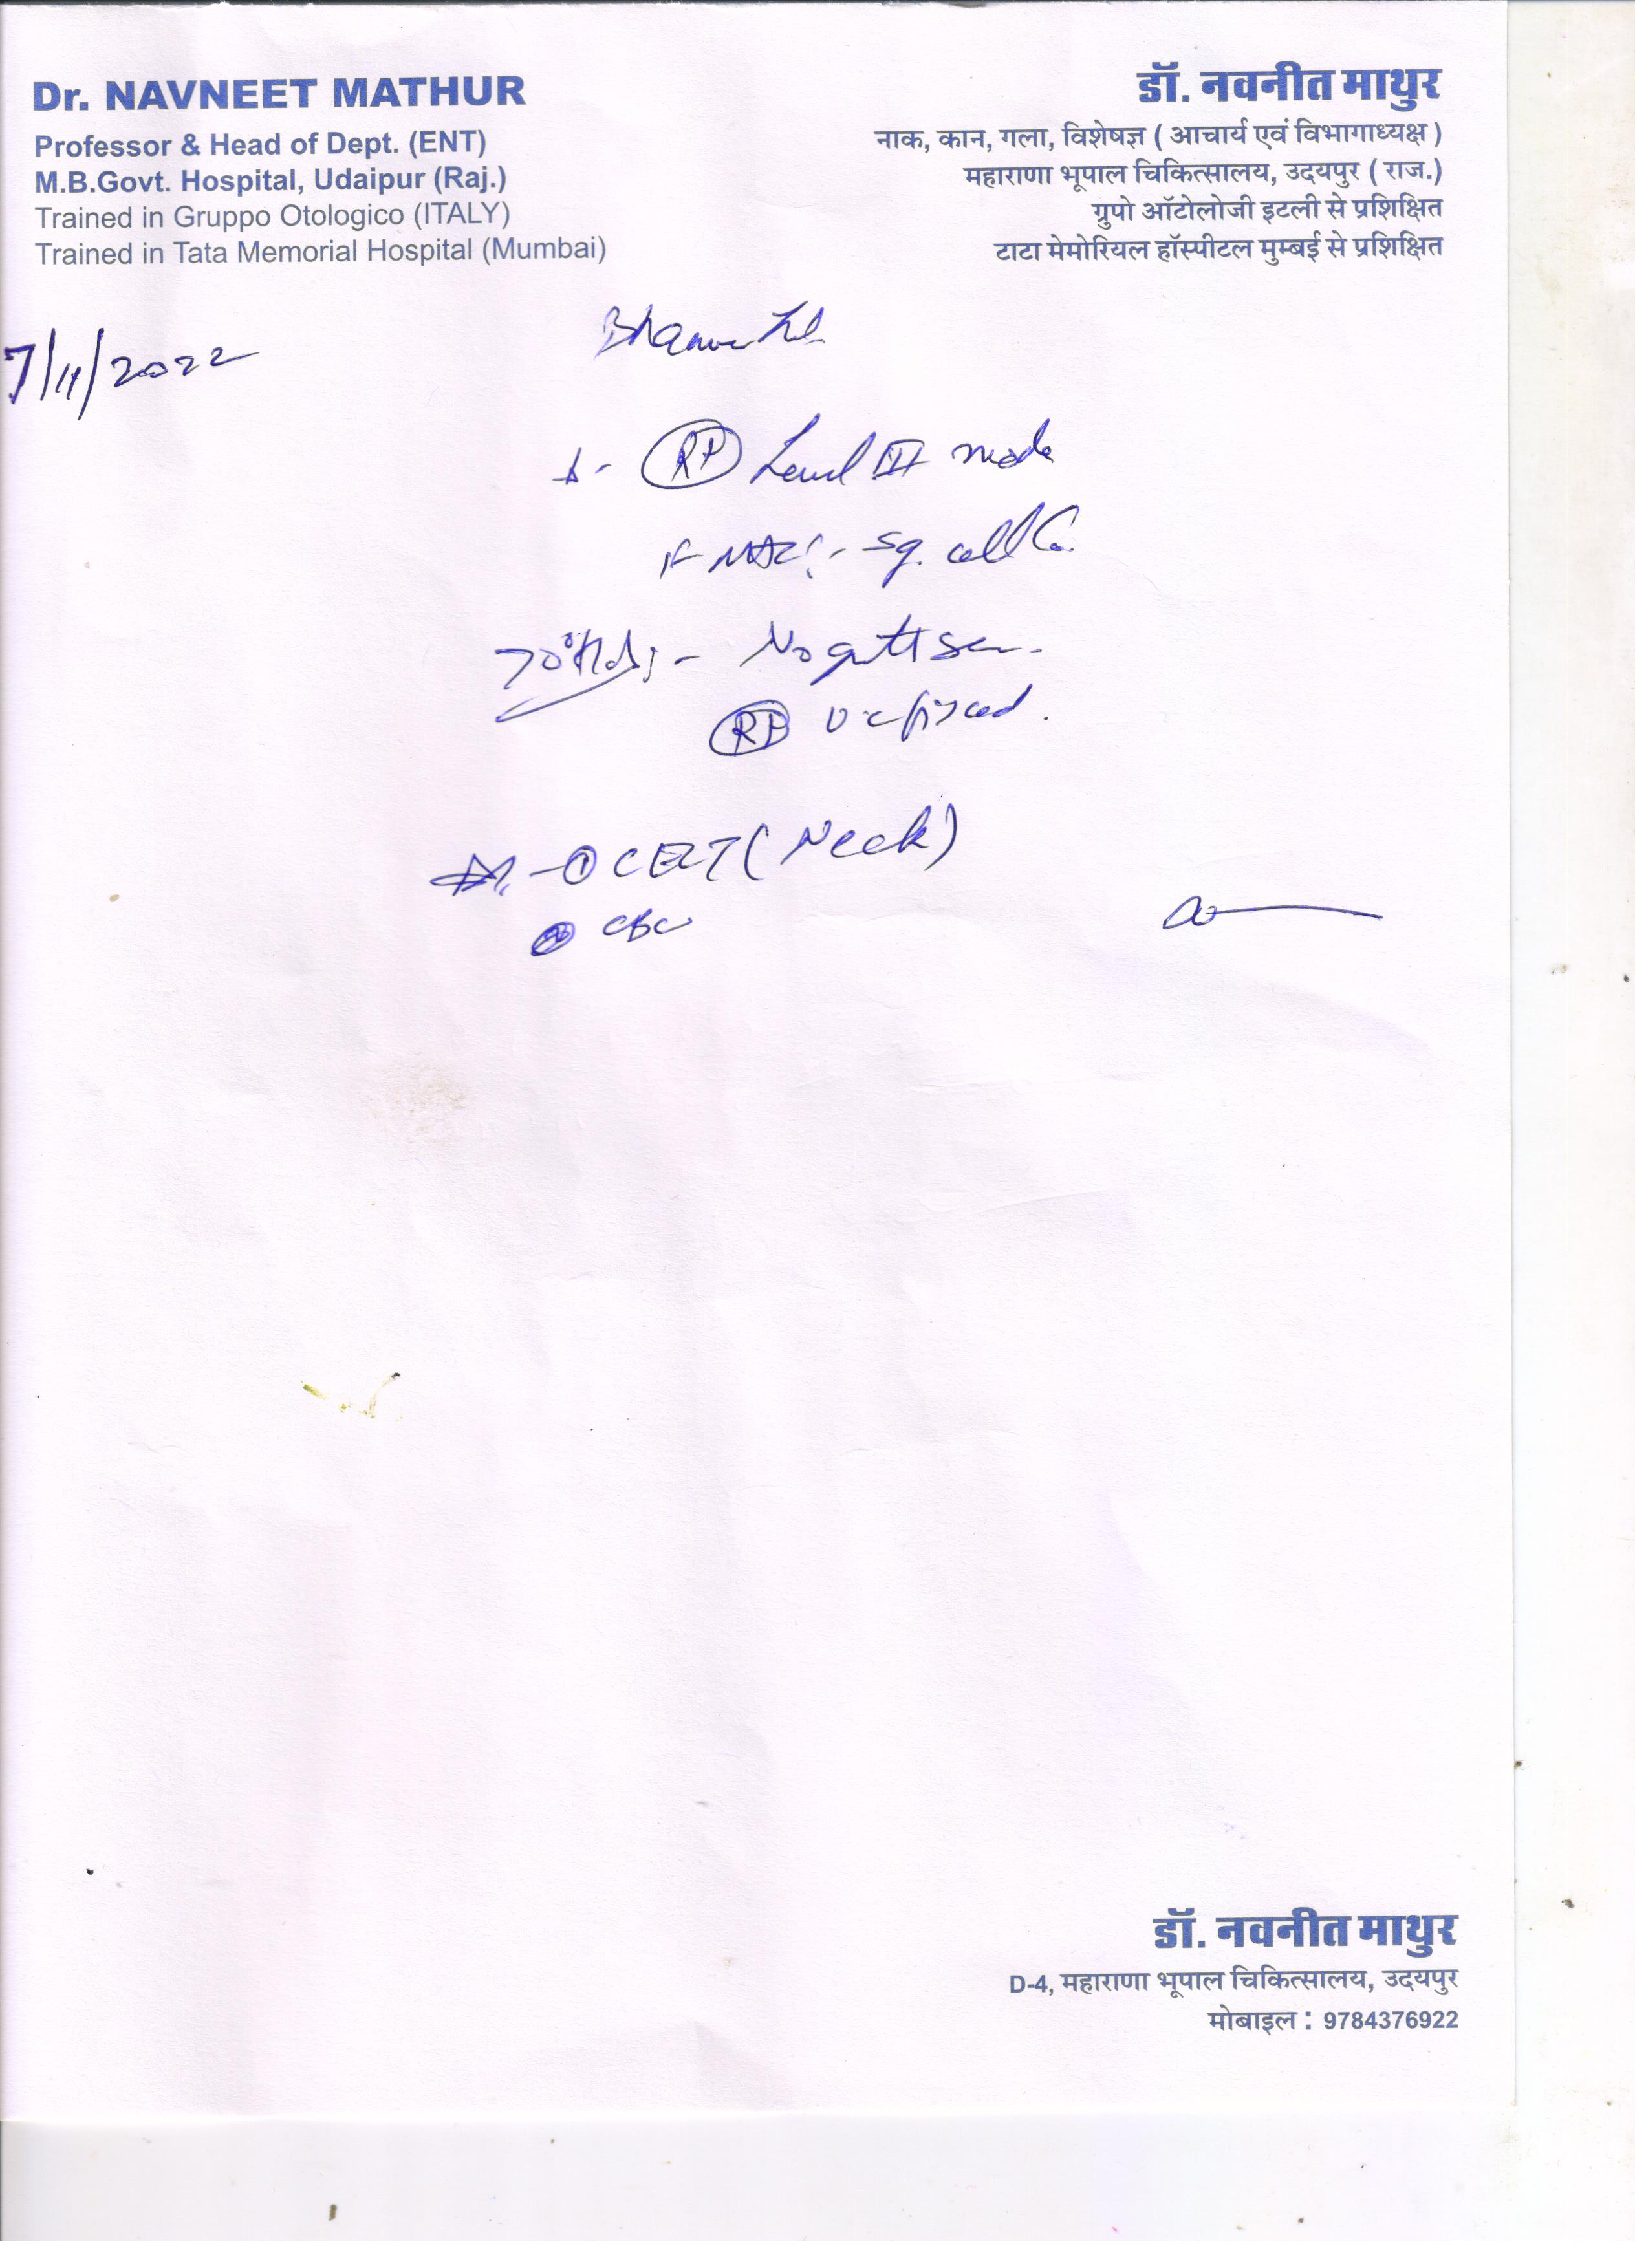 Dr. NAVNEET MATHUR
Professor & Head of Dept. (ENT)
M.B.Govt. Hospital, Udaipur (Raj.)
Trained in Gruppo Otologico (ITALY)
Trained in Tata Memorial Hospital (Mumbai)
डॉ. नवनीत माथुर
नाक, कान, गला, विशेषज्ञ ( आचार्य एवं विभागाध्यक्ष )
महाराणा भूपाल चिकित्सालय, उदयपुर ( राज.)
ग्रुपो ऑटोलोजी इटली से प्रशिक्षित
टाटा मेमोरियल हॉस्पीटल मुम्बई से प्रशिक्षित
7/11/2022
Level III node
Sq. cell Ca.
70°
No
fixed.
① CECT (Neck)
② CBC
डॉ. नवनीत माथुर
D-4, महाराणा भूपाल चिकित्सालय, उदयपुर
मोबाइल : 9784376922